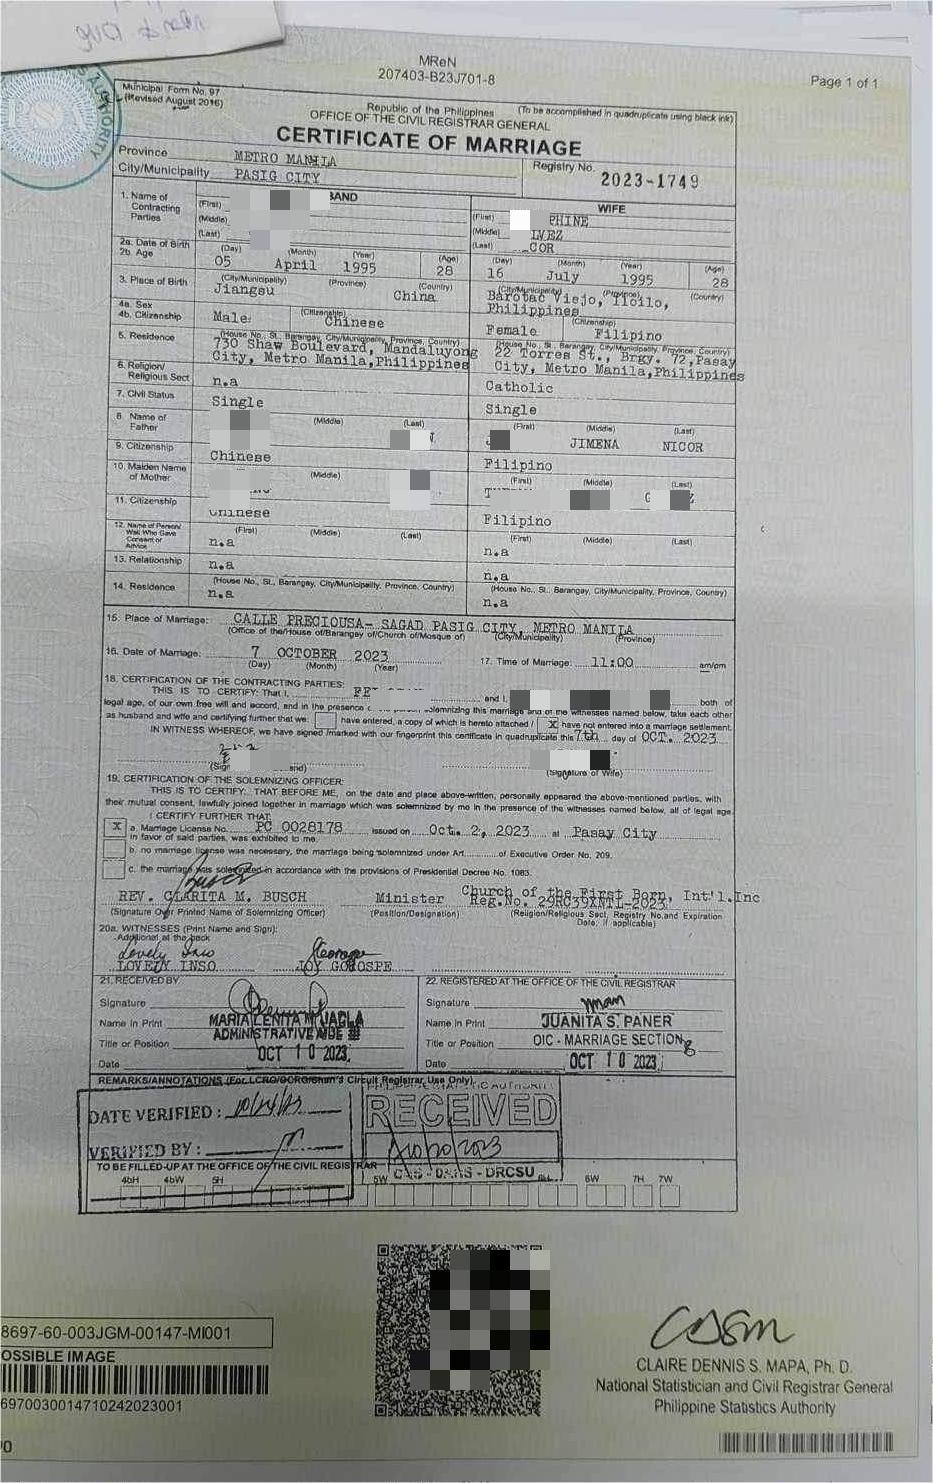 MReN
207403-B23J701-8
Page 1 of 1
Municipal Form No. 97
(Revised August 2016)
(To be accomplished in quadruplicate using black ink)
Republic of the Philippines
OFFICE OF THE CIVIL REGISTRAR GENERAL
CERTIFICATE OF MARRIAGE
Province METRO MANILA
City/Municipality PASIG CITY
Registry No. 2023-1749
1. Name of Contracting Parties
BAND
WIFE
(First)
(First) PHINE
(Middle)
(Middle) LVEZ
(Last)
(Last) COR
2a. Date of Birth
2b. Age
(Day) (Month) (Year) (Age)
05 April 1995 28
(Day) (Month) (Year) (Age)
16 July 1995 28
3. Place of Birth
(City/Municipality) (Province) (Country)
Jiangsu China
(City/Municipality) (Province) (Country)
Barotac Viejo, Iloilo, Philippines
4a. Sex
4b. Citizenship
Male (Citizenship) Chinese
Female (Citizenship) Filipino
5. Residence
(House No., St., Barangay, City/Municipality, Province, Country)
730 Shaw Boulevard, Mandaluyong
City, Metro Manila,Philippines
(House No., St., Barangay, City/Municipality, Province, Country)
22 Torres St., Brgy. 72,Pasay
City, Metro Manila,Philippines
6. Religion/
Religious Sect
n.a
Catholic
7. Civil Status
Single
Single
8. Name of Father
(Middle) (Last)
(First) (Middle) (Last)
JIMENA NICOR
9. Citizenship
Chinese
Filipino
10. Maiden Name of Mother
(Middle)
(First) (Middle) (Last)
11. Citizenship
Chinese
Filipino
12. Name of Person/
Wali Who Gave
Consent or
Advice
(First) (Middle) (Last)
n.a
(First) (Middle) (Last)
n.a
13. Relationship
n.a
n.a
14. Residence
(House No., St., Barangay, City/Municipality, Province, Country)
n.a
(House No., St., Barangay, City/Municipality, Province, Country)
n.a
15. Place of Marriage: CALLE PRECIOUSA- SAGAD PASIG CITY, METRO MANILA
(Office of the/House of/Barangay of/Church of/Mosque of) (City/Municipality) (Province)
16. Date of Marriage: 7 OCTOBER 2023
(Day) (Month) (Year)
17. Time of Marriage: 11:00 am/pm
18. CERTIFICATION OF THE CONTRACTING PARTIES:
THIS IS TO CERTIFY: That I, and I, both of
legal age, of our own free will and accord, and in the presence solemnizing this marriage and of the witnesses named below, take each other
as husband and wife and certifying further that we: have entered, a copy of which is hereto attached / X have not entered into a marriage settlement.
IN WITNESS WHEREOF, we have signed /marked with our fingerprint this certificate in quadruplicate this 7th day of OCT. 2023
(Signature of Wife)
19. CERTIFICATION OF THE SOLEMNIZING OFFICER:
THIS IS TO CERTIFY: THAT BEFORE ME, on the date and place above-written, personally appeared the above-mentioned parties, with
their mutual consent, lawfully joined together in marriage which was solemnized by me in the presence of the witnesses named below, all of legal age.
I CERTIFY FURTHER THAT
X a. Marriage License No. PC 0028178 issued on Oct. 2, 2023 at Pasay City
in favor of said parties, was exhibited to me.
b. no marriage license was necessary, the marriage being solemnized under Art. of Executive Order No. 209.
c. the marriage was solemnized in accordance with the provisions of Presidential Decree No. 1083.
REV. CLARITA M. BUSCH
Minister
Church of the First Born, Int'l.Inc
Reg.No. 29RC39XNTL-2023
(Signature Over Printed Name of Solemnizing Officer) (Position/Designation) (Religion/Religious Sect, Registry No.and Expiration
Date, if applicable)
20a. WITNESSES (Print Name and Sign):
Additional at the back
LOVELY INSO JOY GOROSPE
21. RECEIVED BY
22. REGISTERED AT THE OFFICE OF THE CIVIL REGISTRAR
Signature
Signature
Name in Print
Name in Print JUANITA S. PANER
Title or Position ADMINISTRATIVE AIDE III
Title or Position OIC - MARRIAGE SECTION
Date OCT 10 2023
Date OCT 10 2023
REMARKS/ANNOTATIONS (For LCRO/OCRG/Shari'a Circuit Registrar Use Only)
DATE VERIFIED :
VERIFIED BY :
RECEIVED
DRCSU
TO BE FILLED-UP AT THE OFFICE OF THE CIVIL REGISTRAR
4bH 4bW 5H 5W 6W 7H 7W
8697-60-003JGM-00147-MI001
OSSIBLE IMAGE
6970030014710242023001
CLAIRE DENNIS S. MAPA, Ph. D.
National Statistician and Civil Registrar General
Philippine Statistics Authority